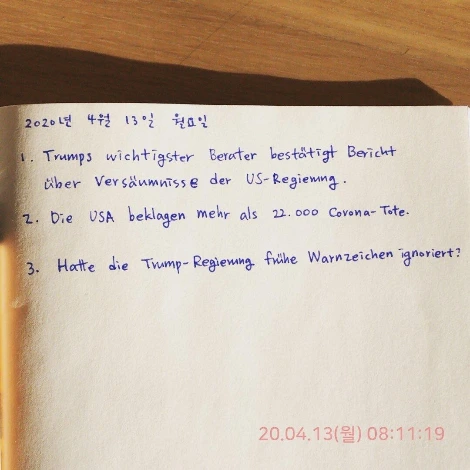 2020년 4월 13일 월요일
1. Trumps wichtigster Berater bestätigt Bericht
über Versäumnisse der US-Regierung.
2. Die USA beklagen mehr als 22.000 Corona-Tote.
3. Hatte die Trump-Regierung frühe Warnzeichen ignoriert?
20.04.13(월) 08:11:19